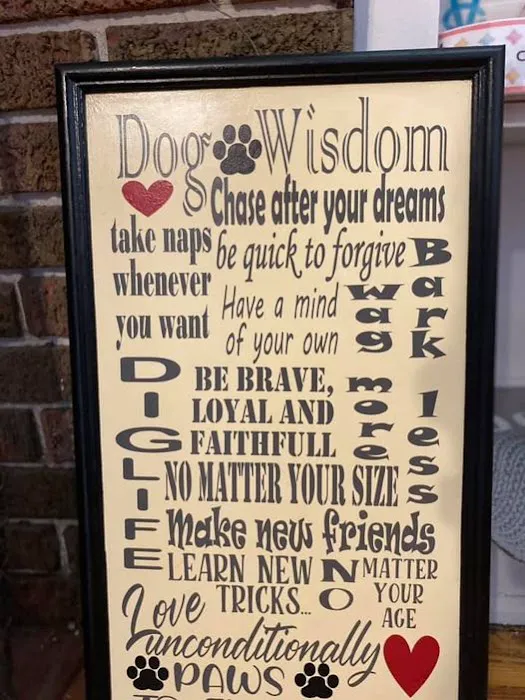 Dog Wisdom
Chase after your dreams
take naps
whenever
you want
be quick to forgive
Have a mind
of your own
Wag more
Bark less
DIG LIFE
BE BRAVE,
LOYAL AND
FAITHFULL
NO MATTER YOUR SIZE
Make new friends
LEARN NEW
TRICKS...
NO MATTER
YOUR
AGE
Love
unconditionally
PAWS